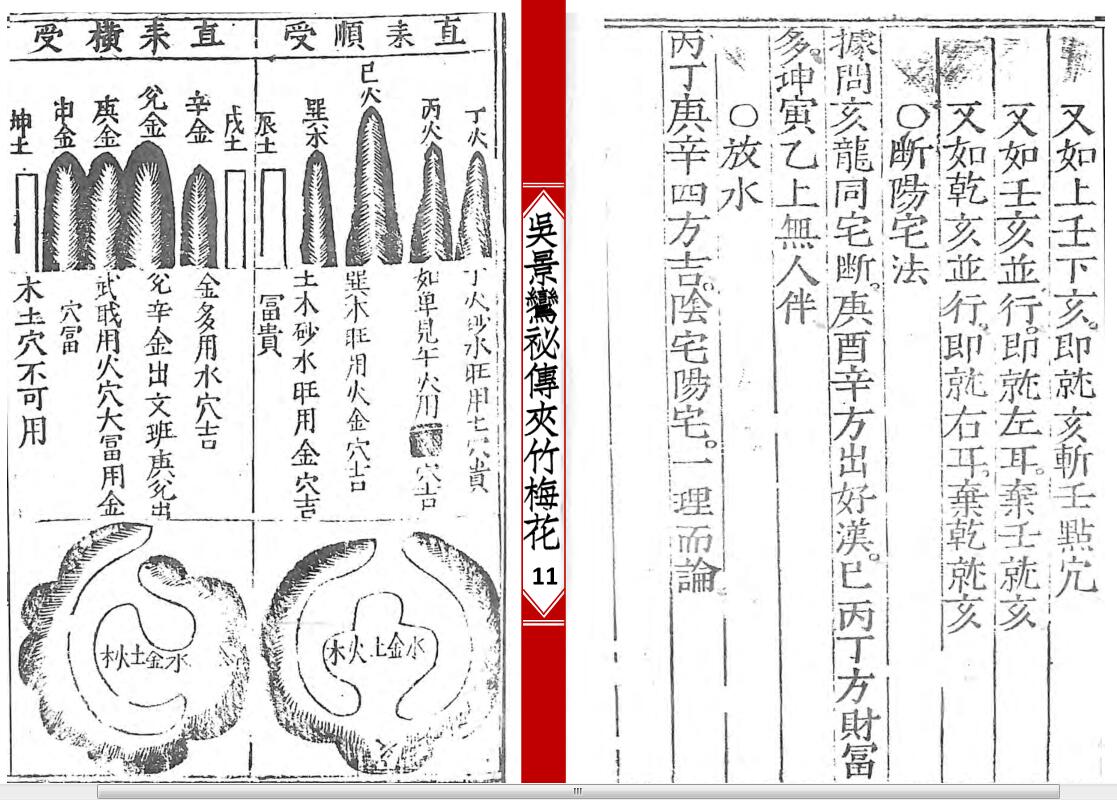 又如上壬下亥。即就亥斬壬點穴
又如壬亥並行。即就左耳。棄壬就亥
又如乾亥並行。即就右耳。棄乾就亥
○斷陽宅法
據問亥龍同宅斷。庚酉辛方出好漢。巳丙丁方財冨
多。坤寅乙上無人伴
○放水
丙丁庚辛四方吉。陰宅陽宅。一理而論
吳景鸞祕傳夾竹梅花
11
直来順受
丁火
丙火
巳火
巽木
辰土
丁火砂水旺用土穴貴
如單見午火用
穴吉
巽木旺用火金穴吉
土木砂水旺用金穴吉
冨貴
木火土金水
直来橫受
戌土
辛金
兊金
庚金
申金
坤土
金多用水穴吉
兊辛金出文班庚兊出
武職用火穴大冨用金
穴冨
木土穴不可用
木火土金水